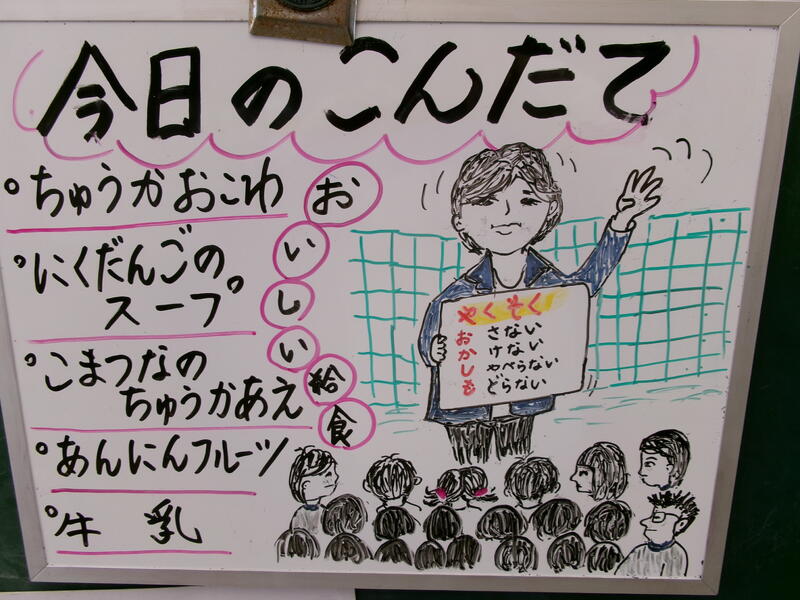 今日のこんだて
ちゅうかおこわ
にくだんごの
スープ
こまつなの
ちゅうかあえ
あんにんフルーツ
牛乳
おいしい給食
やくそく
おさない
かけない
しゃべらない
もどらない